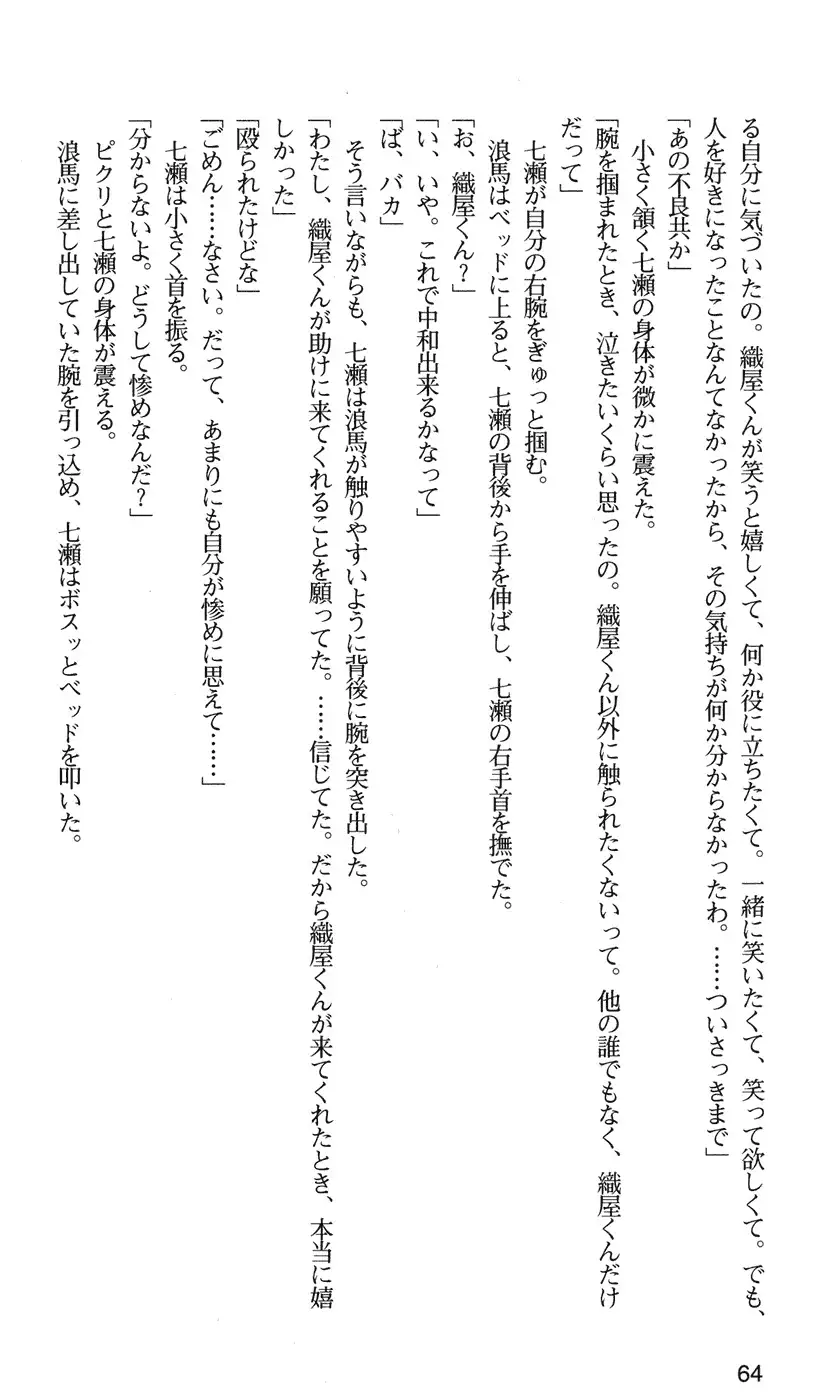 る自分に気づいたの。織屋くんが笑うと嬉しくて、何か役に立ちたくて。一緒に笑いたくて、笑って欲しくて。でも、
人を好きになったことなんてなかったから、その気持ちが何か分からなかったわ。……ついさっきまで」
「あの不良共か」
小さく頷く七瀬の身体が微かに震えた。
「腕を掴まれたとき、泣きたいくらい思ったの。織屋くん以外に触られたくないって。他の誰でもなく、織屋くんだけ
だって」
七瀬が自分の右腕をぎゅっと掴む。
浪馬はベッドに上ると、七瀬の背後から手を伸ばし、七瀬の右手首を撫でた。
「お、織屋くん?」
「い、いや。これで中和出来るかなって」
「ば、バカ」
そう言いながらも、七瀬は浪馬が触りやすいように背後に腕を突き出した。
「わたし、織屋くんが助けに来てくれることを願ってた。……信じてた。だから織屋くんが来てくれたとき、本当に嬉
しかった」
「殴られたけどな」
「ごめん……なさい。だって、あまりにも自分が惨めに思えて……」
七瀬は小さく首を振る。
「分からないよ。どうして惨めなんだ?」
ピクリと七瀬の身体が震える。
浪馬に差し出していた腕を引っ込め、七瀬はボスッとベッドを叩いた。
64